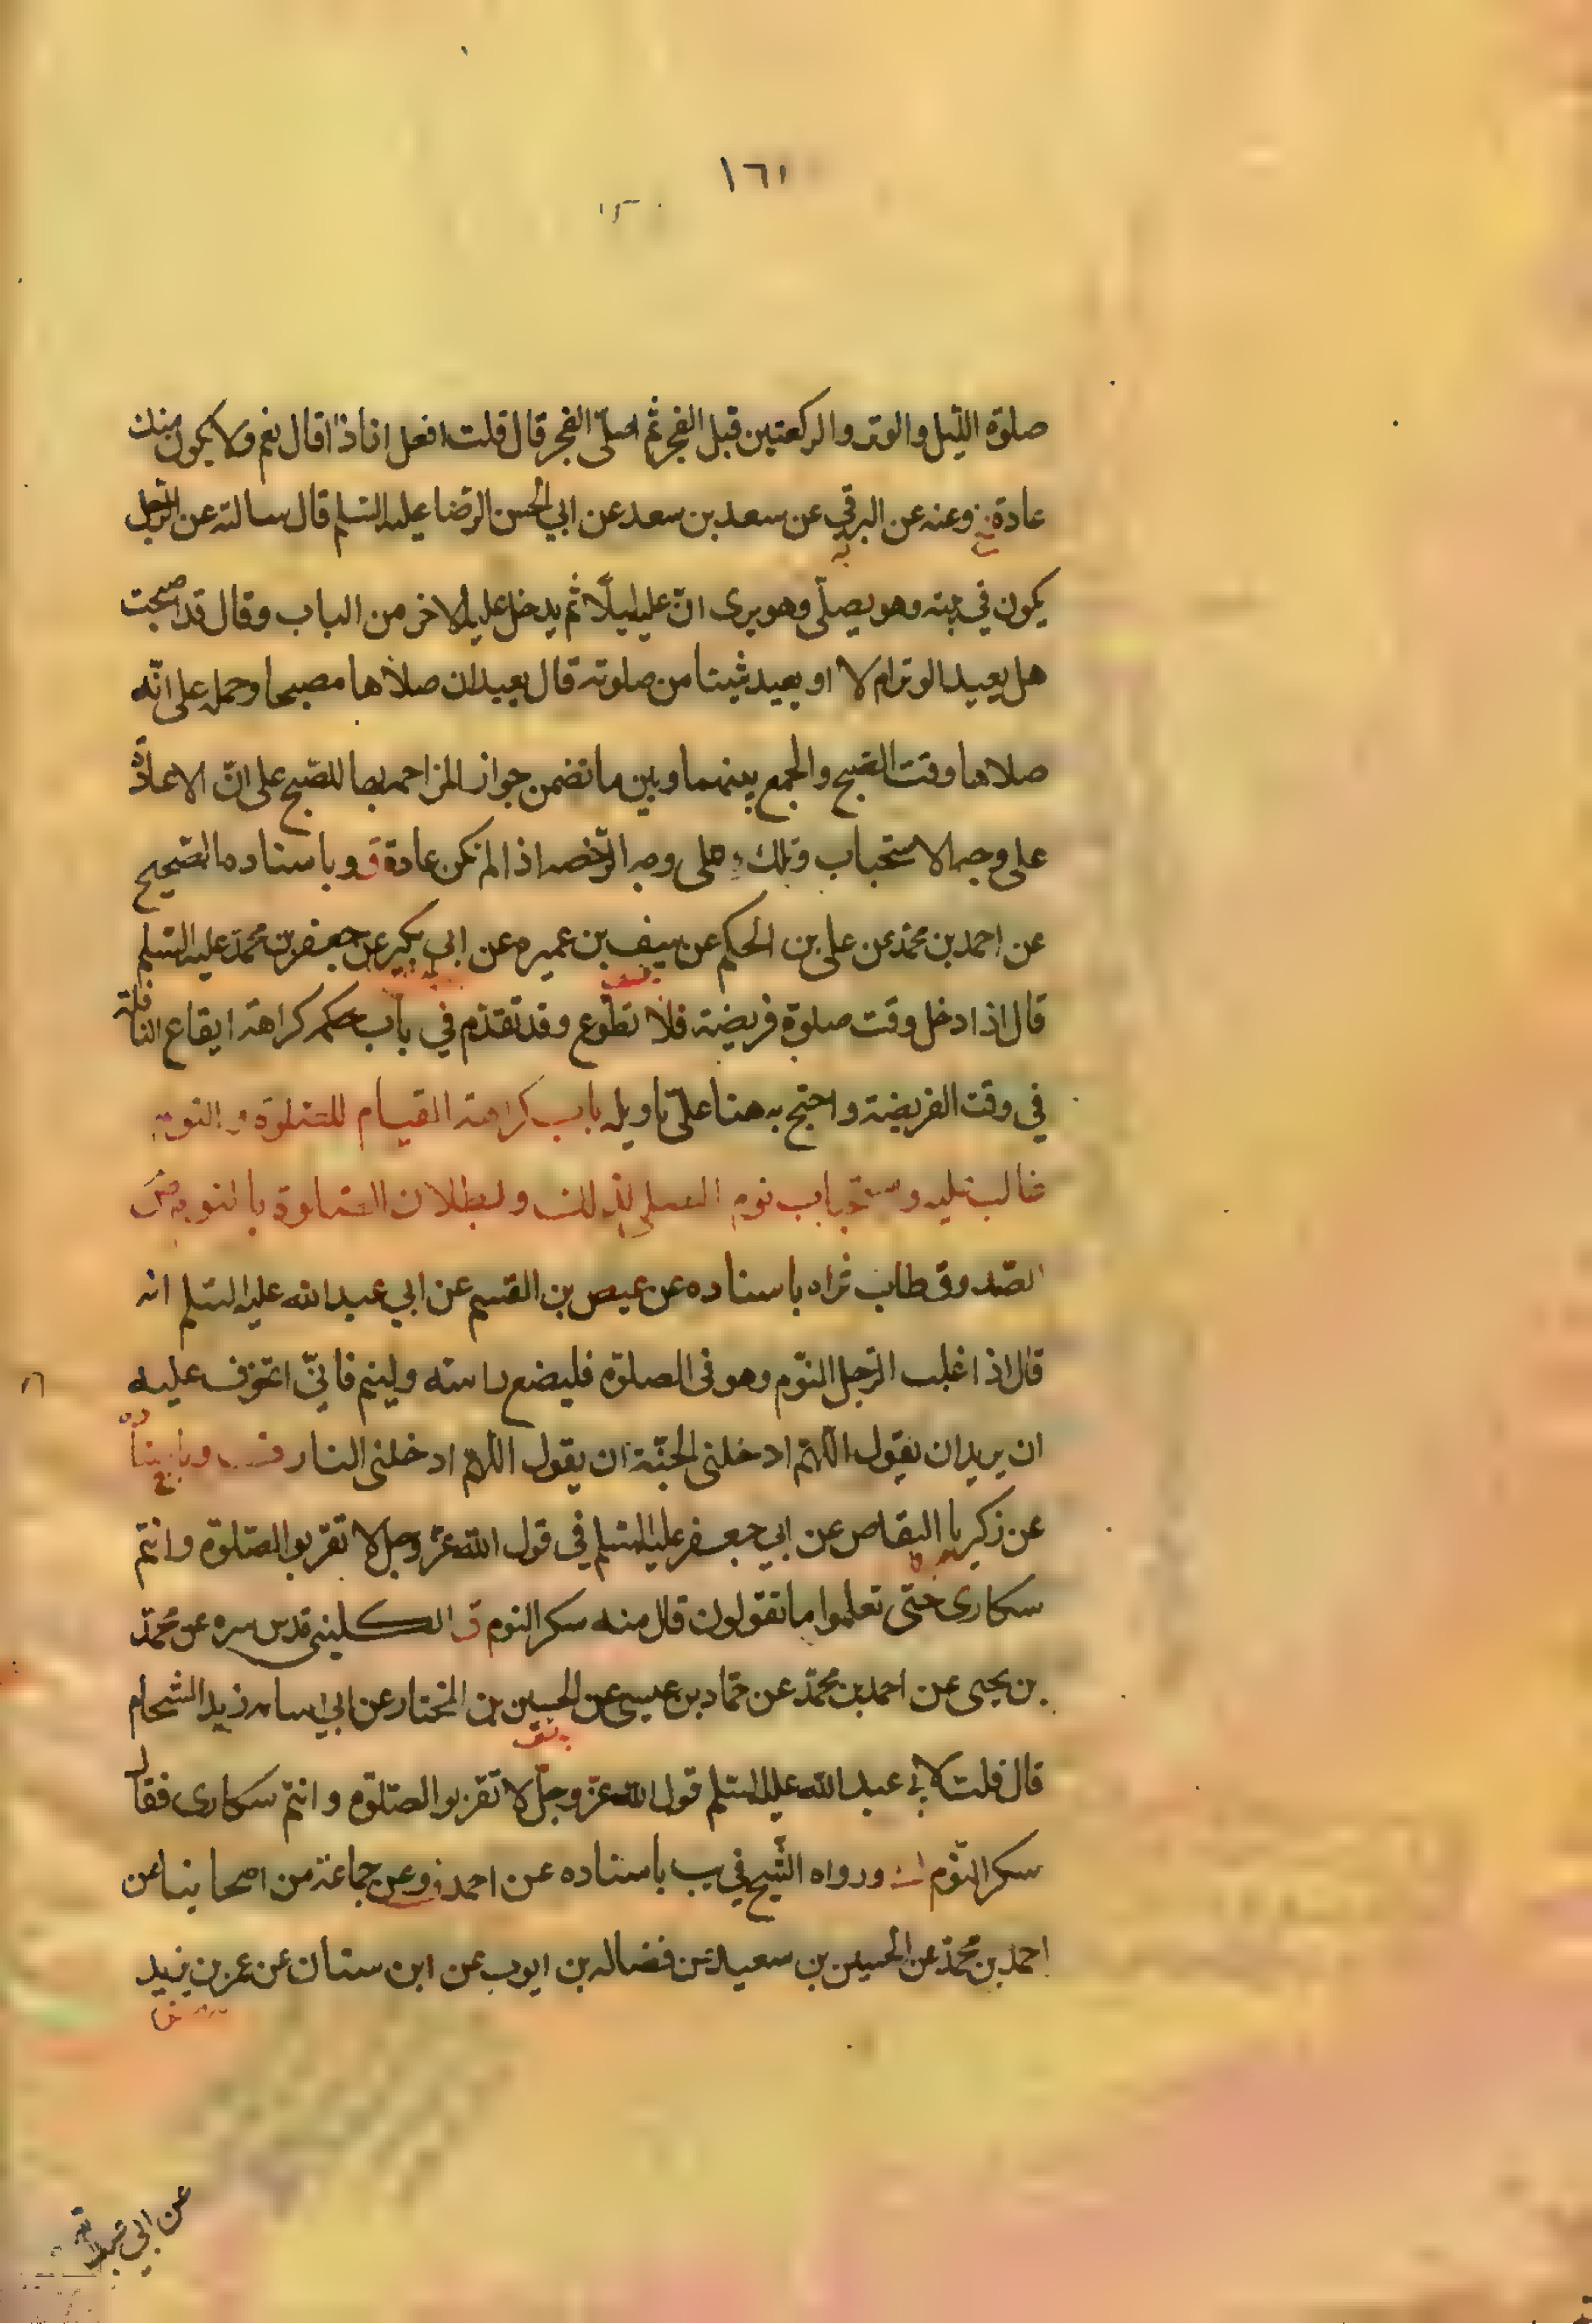 ١٦١
صلوة الليل والوتر والركعتين قبل الفجر ثم اصلى الفجر قال قلت افعل انا ذا قال نعم ولا يكون منك
عادة وعنه عن البرقي عن سعد بن سعد عن ابي الحسن الرضا عليه السلم قال سالته عن الرجل
يكون في بيته وهو يصلّى وهو يرى انّ عليه ليلًا ثم يدخل عليه الاخر من الباب وقال قد اصبحت
هل يعيد الوتر ام لا او يعيد شيئا من صلوته قال يعيد ان صلاها مصبحا وحمل على انّه
صلاها وقت الصّبح والجمع بينهما وبين ما تضمن جواز المزاحمه بها للصّبح على انّ الاعادة
على وجه الاستحباب وتلك على وجه الرّخصه اذا لم تكن عادة ق وباسناده الصّحيح
عن احمد بن محمّد عن على بن الحكم عن سيف بن عميره عن ابي بكير عن جعفر بن محمّد عليه السّلم
قال اذا دخل وقت صلوة فريضة فلا تطّوع وقد تقدّم في باب حكم كراهة ايقاع النافلة
في وقت الفريضة واحتج به هنا على تاويله باب كراهة القيام للصّلوة والنوم
غالب عليه واستحباب نوم المصلى لذلك ولبطلان الصّلوة بالنوم
الصّدوق طاب ثراه باسناده عن عيص بن القسم عن ابي عبد الله عليه السّلم انه
قال اذا غلب الرّجل النّوم وهو فى الصلوة فليضع راسه ولينم فانّى اتخوف عليه
ان يريد ان يقول اللّهمّ ادخلنى الجنّة ان يقول اللّهمّ ادخلنى النار
عن زكريا النقاض عن ابي جعفر عليه السّلم في قول الله عزّ وجل لا تقربوا الصّلوة وانتم
سكارى حتى تعلموا ما تقولون قال منه سكر النوم ق الكلينى قدس سره عن محمّد
بن يحيى عن احمد بن محمّد عن حمّاد بن عيسى عن الحسين بن المختار عن ابي اسامه زيد الشحام
قال قلت لابي عبد الله عليه السّلم قول الله عزّ وجلّ لا تقربوا الصّلوة وانتم سكارى فقال
سكر النّوم ورواه الشّيخ في يب باسناده عن احمد وعن جماعة من اصحابنا عن
احمد بن محمّد عن الحسين بن سعيد عن فضاله بن ايوب عن ابن سنان عن عمر بن يزيد
عن ابي